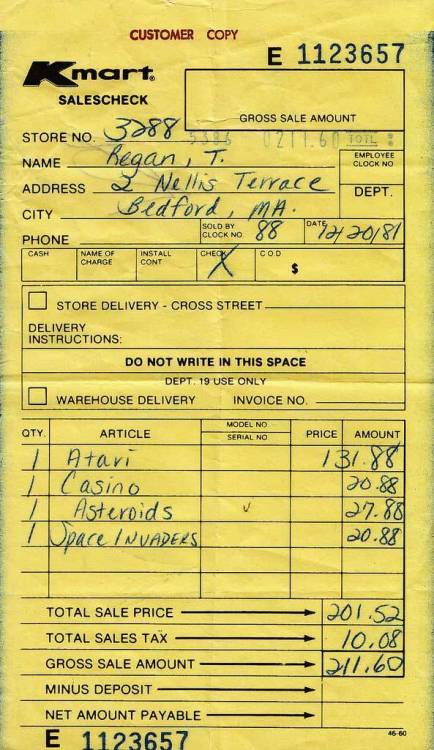 CUSTOMER COPY
E 1123657
Kmart®
SALESCHECK
GROSS SALE AMOUNT
STORE NO. 3288 5386 0211.60 TOTL
NAME Regan, T. EMPLOYEE CLOCK NO
ADDRESS 2 Nellis Terrace DEPT.
CITY Bedford, MA.
PHONE SOLD BY CLOCK NO. 88 DATE 12/20/81
CASH NAME OF CHARGE INSTALL CONT CHECK X C O D $
STORE DELIVERY - CROSS STREET
DELIVERY INSTRUCTIONS:
DO NOT WRITE IN THIS SPACE
DEPT. 19 USE ONLY
WAREHOUSE DELIVERY INVOICE NO.
QTY. ARTICLE MODEL NO. SERIAL NO PRICE AMOUNT
1 Atari 131.88
1 Casino 20.88
1 Asteroids 27.88
1 Space INVADERS 20.88
TOTAL SALE PRICE 201.52
TOTAL SALES TAX 10.08
GROSS SALE AMOUNT 211.60
MINUS DEPOSIT
NET AMOUNT PAYABLE
46-60
E 1123657